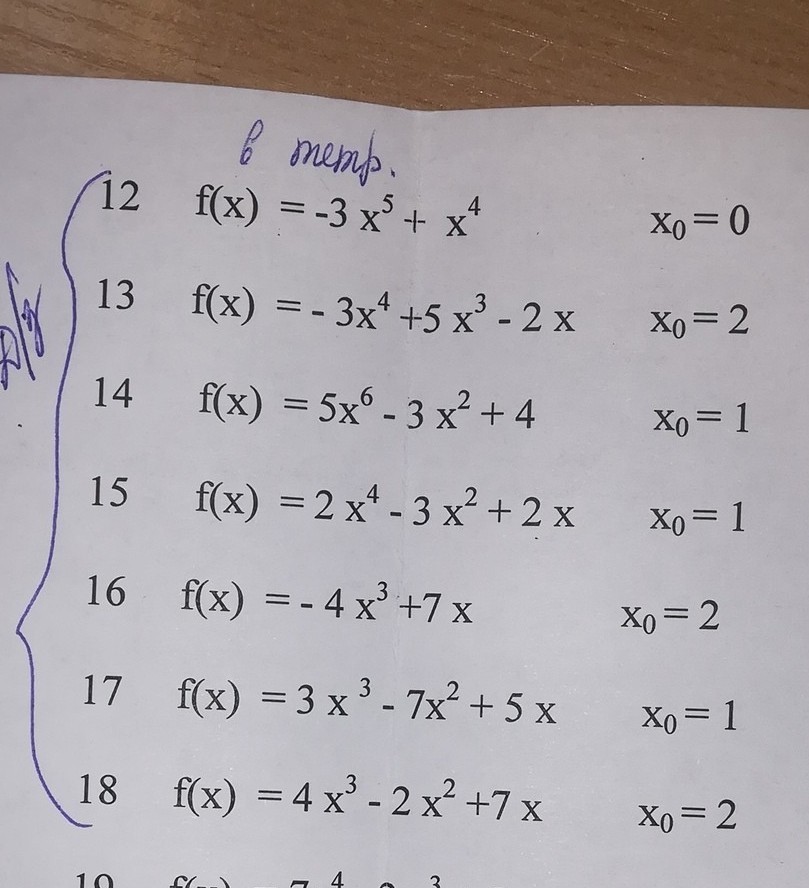 в тетр.
12 f(x) = -3 x⁵ + x⁴ x₀ = 0
Д/з
13 f(x) = - 3x⁴ +5 x³ - 2 x x₀ = 2
14 f(x) = 5x⁶ - 3 x² + 4 x₀ = 1
15 f(x) = 2 x⁴ - 3 x² + 2 x x₀ = 1
16 f(x) = - 4 x³ +7 x x₀ = 2
17 f(x) = 3 x ³ - 7x² + 5 x x₀ = 1
18 f(x) = 4 x³ - 2 x² +7 x x₀ = 2